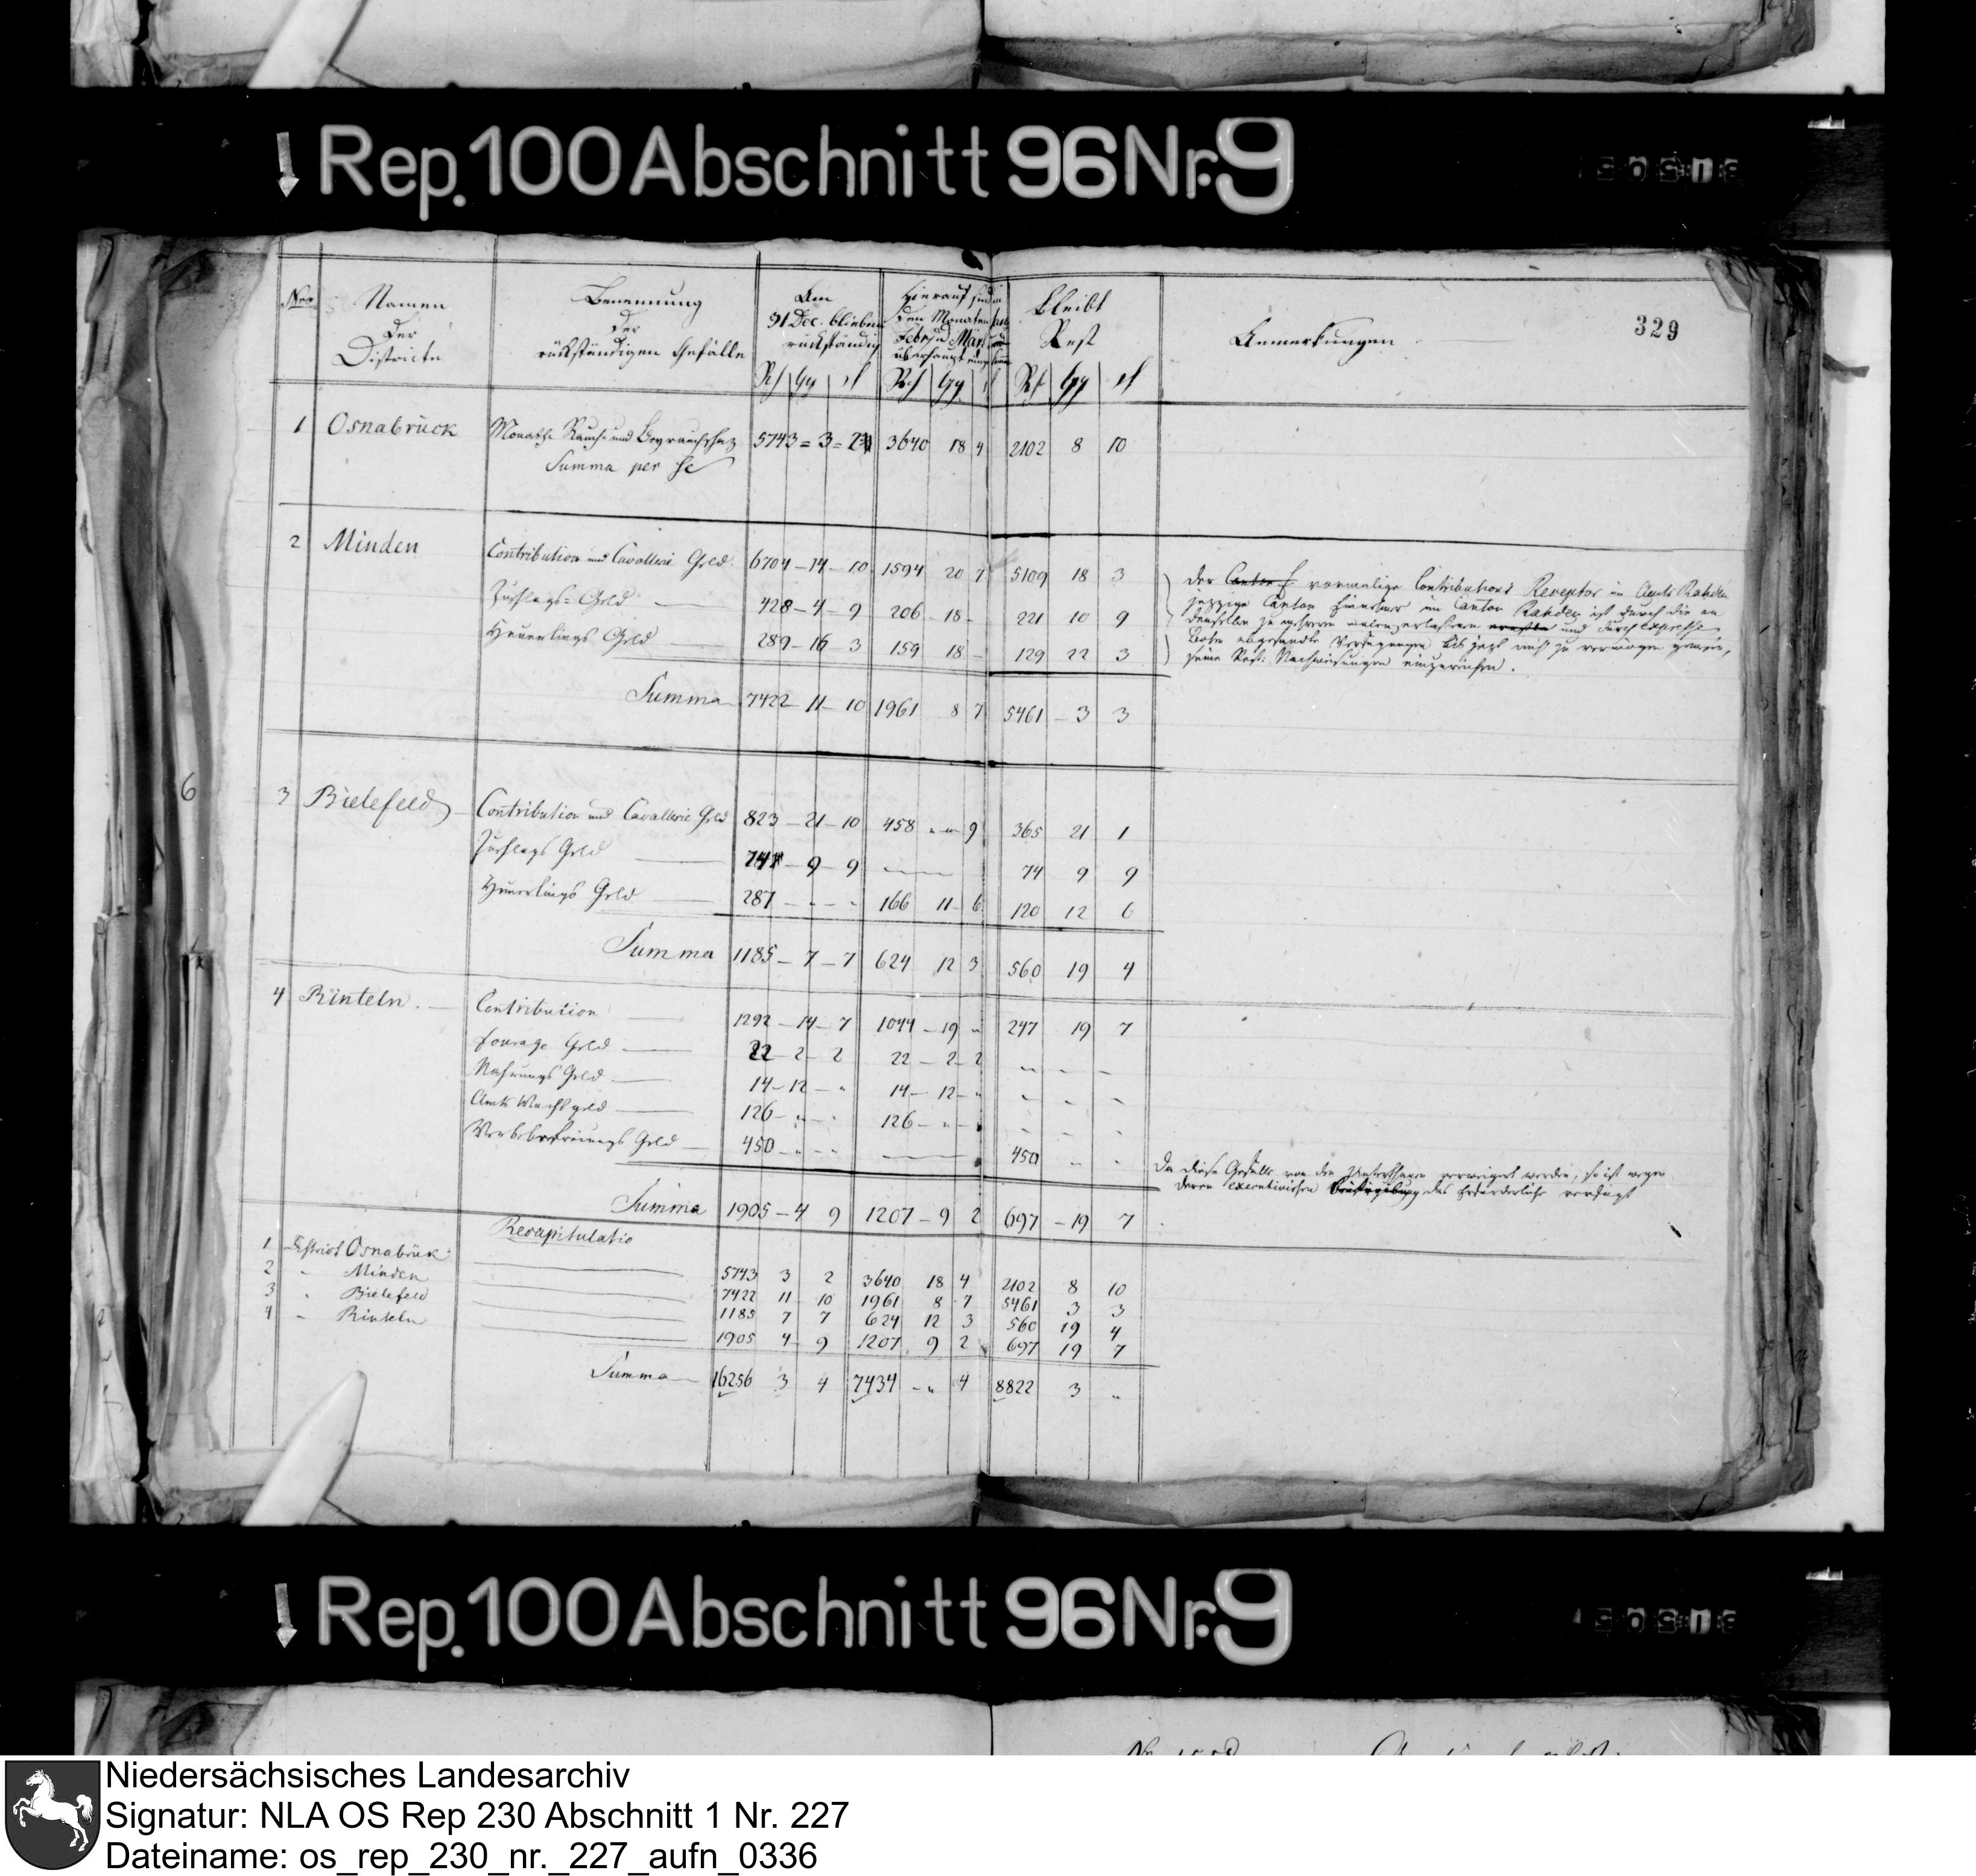 Rep. 100 Abschnitt 96 Nr. 9
329
Nro. Namen der Districte
Benennung der rückständigen Gefälle
Am 31 Dec. blieben rückständig
Hierauf sind in den Monaten Febr. u März überhaupt
Bleibt Rest
Anmerkungen
1 Osnabrück Monaths Rauch und Beyrauchschaz 5743 = 3 = 2 3640 18 4 2102 8 10
Summa per se
2 Minden Contribution und Cavallerie Geld 6704 – 14 – 10 1594 20 7 5109 18 3
Zuschlags-Geld — 428 – 4 – 9 206 – 18 – 221 10 9
Heuerlings Geld 289 – 16 3 159 18 – 129 22 3
der vormalige Contributions Receptor im Amte Rahden
jezzige Canton Einnehmer im Canton Rahden ist durch die an
denselben zu mehrern erlaßenen und durch expresse
Boten abgesandte Verfügungen bis jezt nicht zu vermögen gewesen,
seine Rest-Nachweisungen einzureichen.
Summa 7422 – 11 – 10 1961 8 7 5461 – 3 3
6
3 Bielefeld Contribution und Cavallerie Geld 823 – 21 – 10 458 „ „ 9 365 21 1
Zuschlags Geld — 74 – 9 9 — 74 9 9
Heuerlings Geld — 287 - - - 166 11 – 6 120 12 6
Summa 1185 – 7 – 7 624 12 3 560 19 4
4 Rinteln. Contribution — 1292 – 14 – 7 1044 – 19 „ 247 19 7
Fourage Geld — 22 – 2 – 2 22 – 2 – 2 „ - -
Nahrungs Geld — 14 – 12 – „ 14 – 12 – „ - - -
Amts Wachtgeld — 126 – „ - 126 – „ - - - -
Geld — 450 – „ - - — 450 „ -
Da diese Gefälle von den Unterthanen verweigert werden, so ist wegen
deren executivischen das Erforderliche verfügt
Summa 1905 – 4 9 1207 – 9 2 697 – 19 7
Recapitulatio
1 District Osnabrück — 5743 3 2 3640 18 4 2102 8 10
2 „ Minden — 7422 11 10 1961 8 7 5461 3 3
3 „ Bielefeld — 1185 7 7 624 12 3 560 19 4
4 – Rinteln — 1905 4 9 1207 9 2 697 19 7
Summa — 16256 3 4 7434 - „ 4 8822 3 „
Rep. 100 Abschnitt 96 Nr. 9
Niedersächsisches Landesarchiv
Signatur: NLA OS Rep 230 Abschnitt 1 Nr. 227
Dateiname: os_rep_230_nr._227_aufn_0336